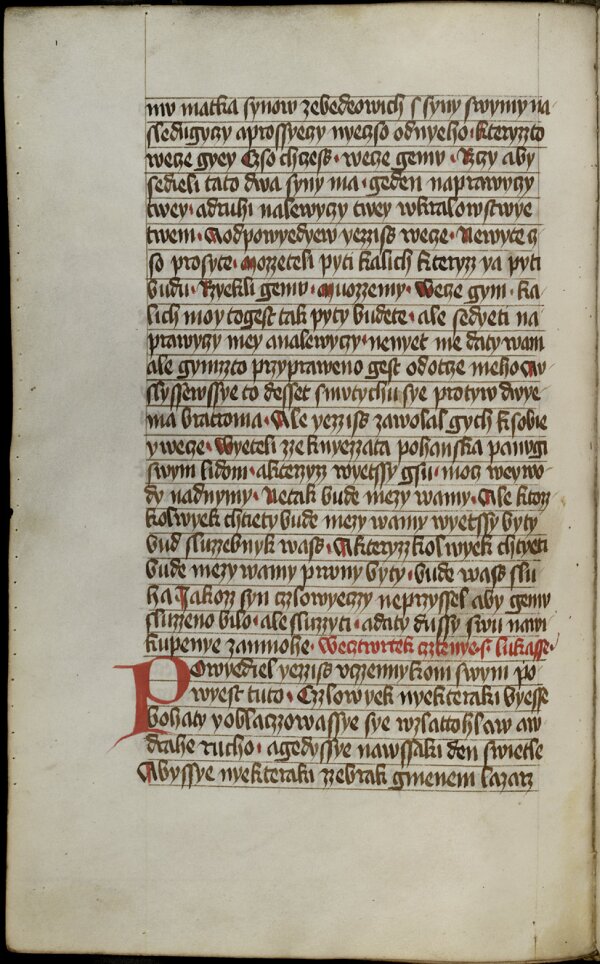 mv matka synow zebedeowich s syny swymy na
sledugyczy aprossyeczy nyeczso odnyeho · kteryzto
wecze gyey Czso chczess · wecze gemv · Rczy aby
sedieli tato dwa syny ma · geden naprawyczy
twey · adruhi nalewyczy twey wkralowstwye
twem · Aodpowyedyew yezziss wecze · Newyte cz
so prosyte · Mozzeteli pyti kalich kteryz ya pyti
budu · Rzyekli gemv · Muozzemy · Wecze gym · ka
lich moy togest tak pyty budete · ale sedyeti na
prawyczy mey analewyczy · nenyet me daty wam
ale gymzto przypraweno gest odotcze meho Av
slyssewssye to desset smvtychu sye protyw dwye
ma bratroma · Ale yezziss zawolal gych ksobie
ywecze · Wyeteli zze knyezzata pohanska panugi
swym lidom · akterzyz wyetssy gsu · mocz weywo
dy nadnymy · Netak bude mezy wamy · Ale ktoz
kolwyek chtiety bude mezy wamy wyetssy byty
bud sluzzebnyk wass · Akteryzkolwyek chtyeti
bude mezy wamy prwny byty · bude wass slu
ha Jakoz syn czlowyeczy neprzyssel aby gemv
sluzzeno bilo · ale sluzzyti · adaty dussy swu navy
kupenye zamnohe · Wecztwrtek cztenye · s · lukasse ·
Powyediel yezziss vczennykom swym po
wyest tuto · Czlowyek nyekteraki byesse
bohaty yoblaczowassye sye wzlattohlaw aw
drahe rucho · agedyssye nawssaki den swietle
Abyssye nyekteraki zzebrak gmenem lazarz